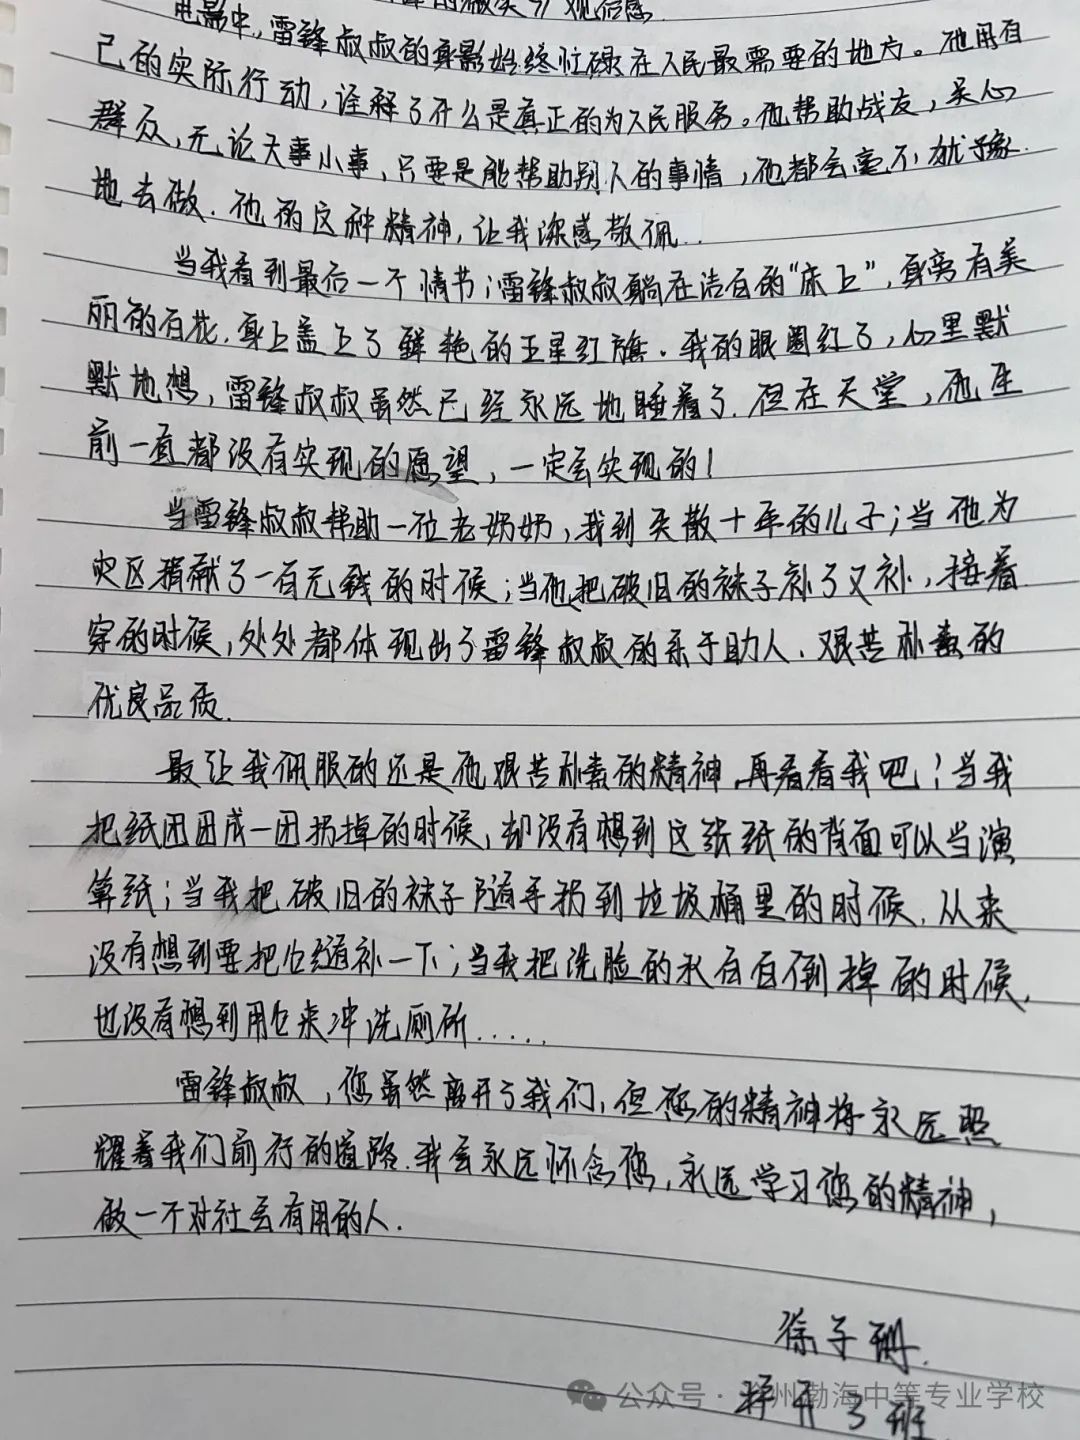 的微笑》观后感
电影中，雷锋叔叔的身影始终忙碌在人民最需要的地方。他用自
己的实际行动，诠释了什么是真正的为人民服务。他帮助战友，关心
群众，无论大事小事，只要是能帮助别人的事情，他都会毫不犹豫
地去做.他的这种精神,让我深感敬佩..
当我看到最后一个情节;雷锋叔叔躺在洁白的“床上”,身旁有美
丽的百花.身上盖上了鲜艳的五星红旗.我的眼圈红了,心里默
默地想,雷锋叔叔虽然已经永远地睡着了.但在天堂,他生
前一直都没有实现的愿望,一定会实现的!
当雷锋叔叔帮助一位老奶奶,找到失散十年的儿子;当他为
灾区捐献了一百元钱的时候;当他把破旧的袜子补了又补,接着
穿的时候,处处都体现出了雷锋叔叔的乐于助人.艰苦朴素的
优良品质.
最让我佩服的还是他艰苦朴素的精神.再看看我吧!当我
把纸团团成一团扔掉的时候,却没有想到这张纸的背面可以当演
算纸;当我把破旧的袜子随手扔到垃圾桶里的时候.从来
没有想到要把它缝补一下;当我把洗脸的水白白倒掉的时候,
也没有想到用它来冲洗厕所.....
雷锋叔叔,您虽然离开了我们,但您的精神将永远照
耀着我们前行的道路.我会永远怀念您,永远学习您的精神,
做一个对社会有用的人.
徐子珊.
3班
公众号·州渤海中等专业学校